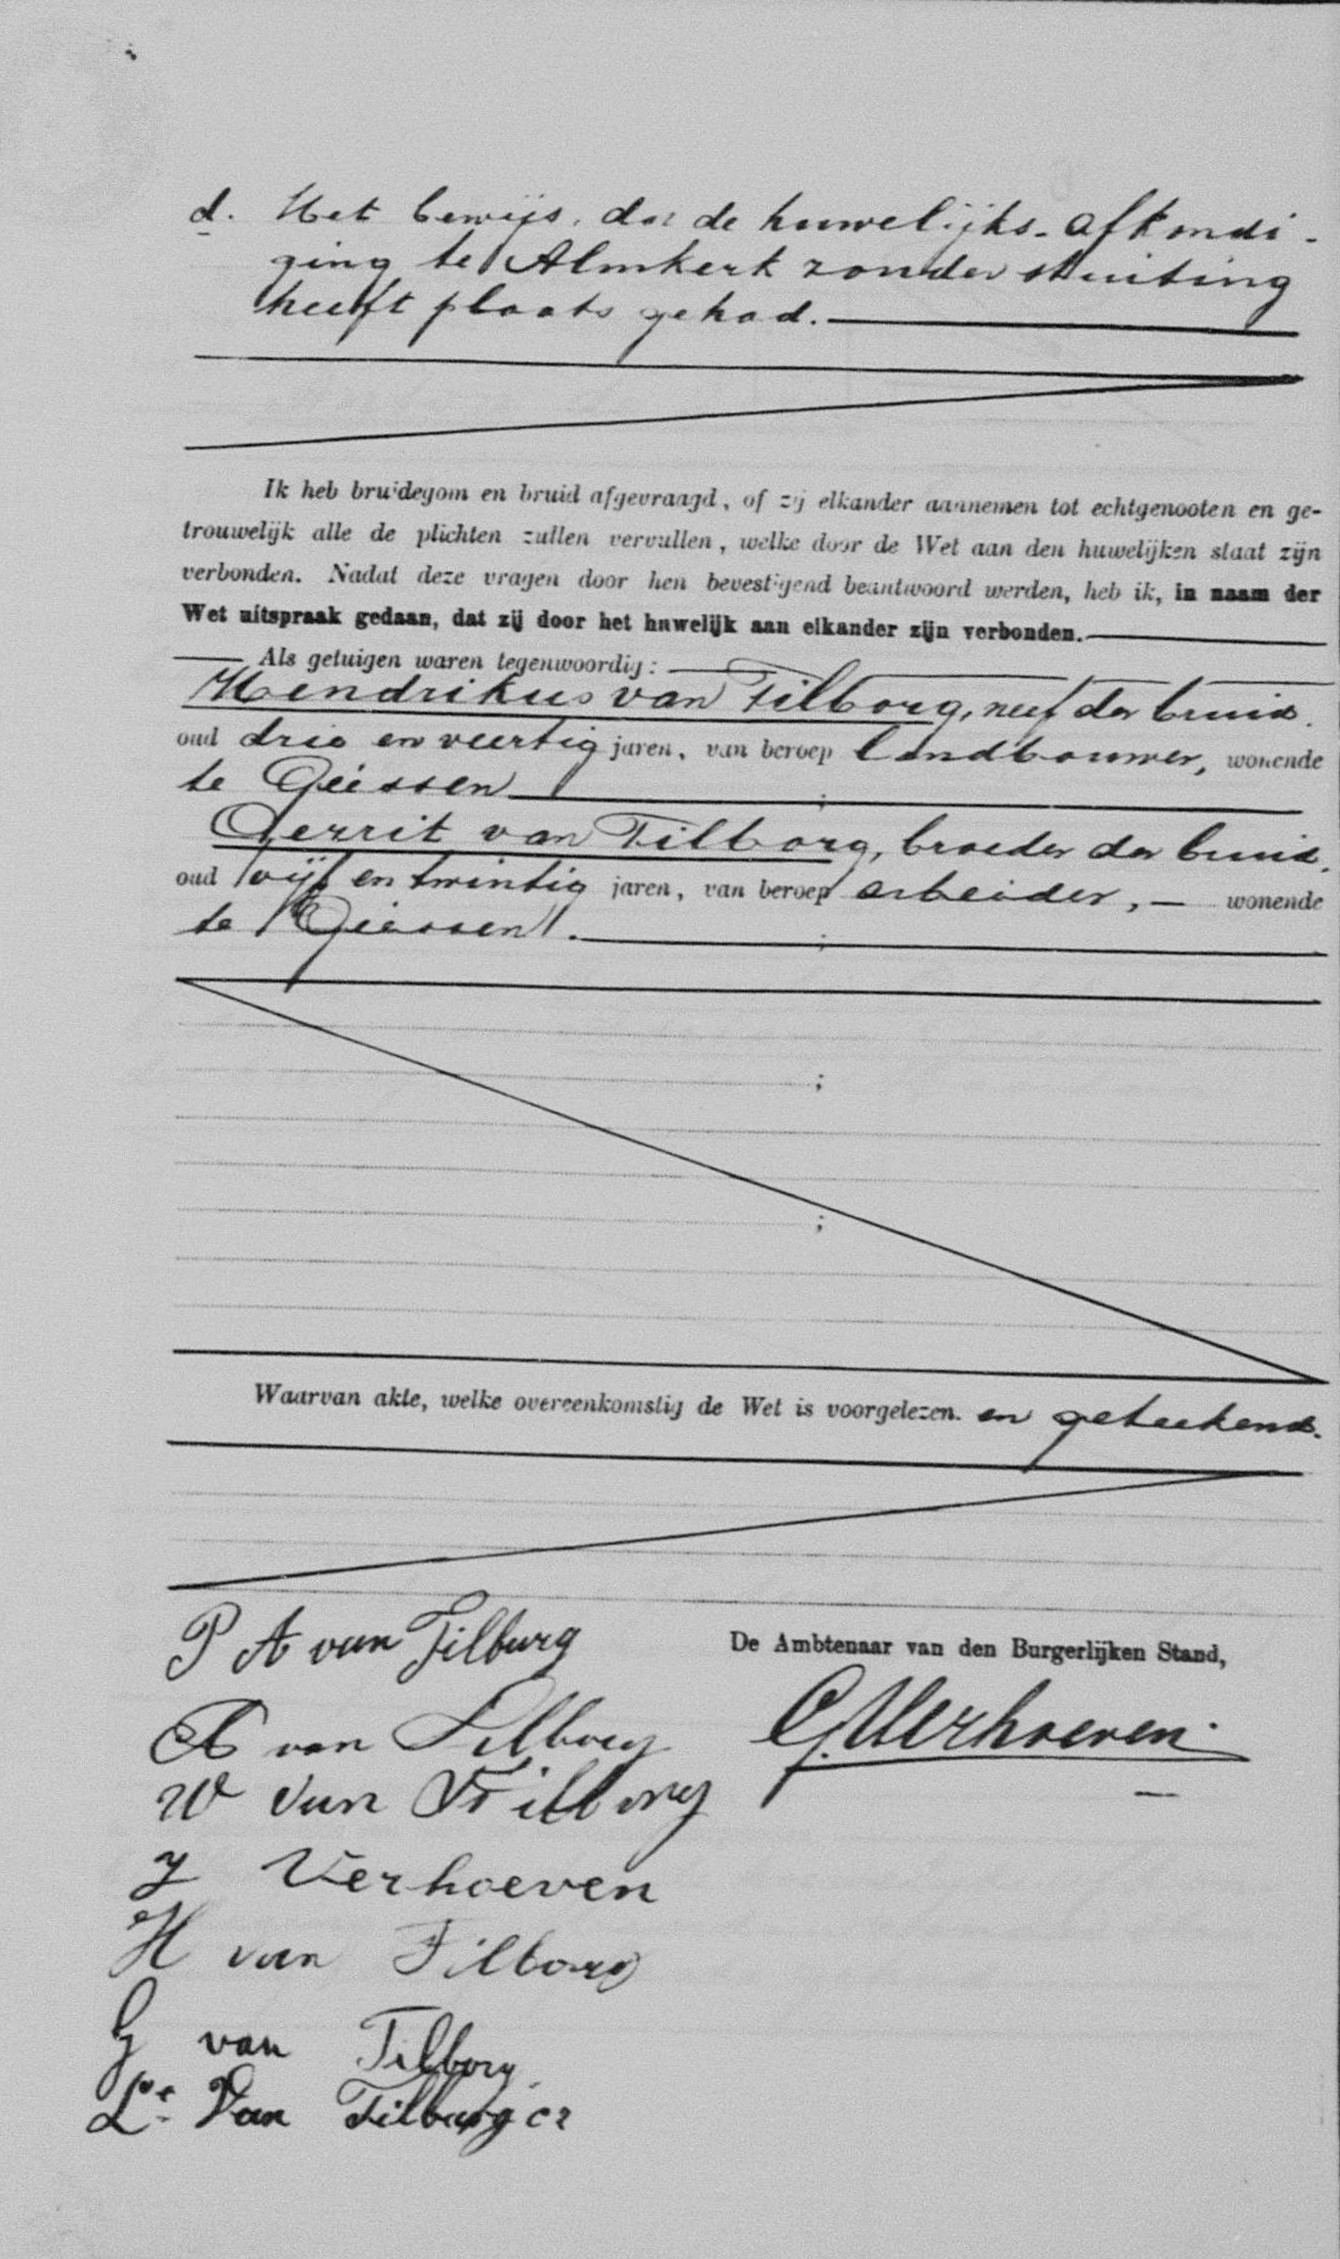 d. Het bewijs, dat de huwelijks-afkondi-
ging te Almkerk zonder stuiting
heeft plaats gehad.
Ik heb bruidegom en bruid afgevraagd, of zij elkander aannemen tot echtgenooten en ge-
trouwelijk alle de plichten zullen vervullen, welke door de Wet aan den huwelijken staat zijn
verbonden. Nadat deze vragen door hen bevestigend beantwoord werden, heb ik, in naam der
Wet uitspraak gedaan, dat zij door het huwelijk aan elkander zijn verbonden.
Als getuigen waren tegenwoordig:
Hendrikus van Tilborg, neef der bruid.
oud drie en veertig jaren, van beroep landbouwer, wonende
te Giessen ;
Gerrit van Tilborg, broeder der bruid,
oud vijf en twintig jaren, van beroep arbeider, — wonende
te Giessen. ;
;
;
Waarvan akte, welke overeenkomstig de Wet is voorgelezen. en geteekend.
P A van Tilburg
De Ambtenaar van den Burgerlijken Stand,
A van Tilborg
G. Verhoeven.
W van Tilborg
J Verhoeven
H van Tilborg
G van Tilborg
Van Tilburg